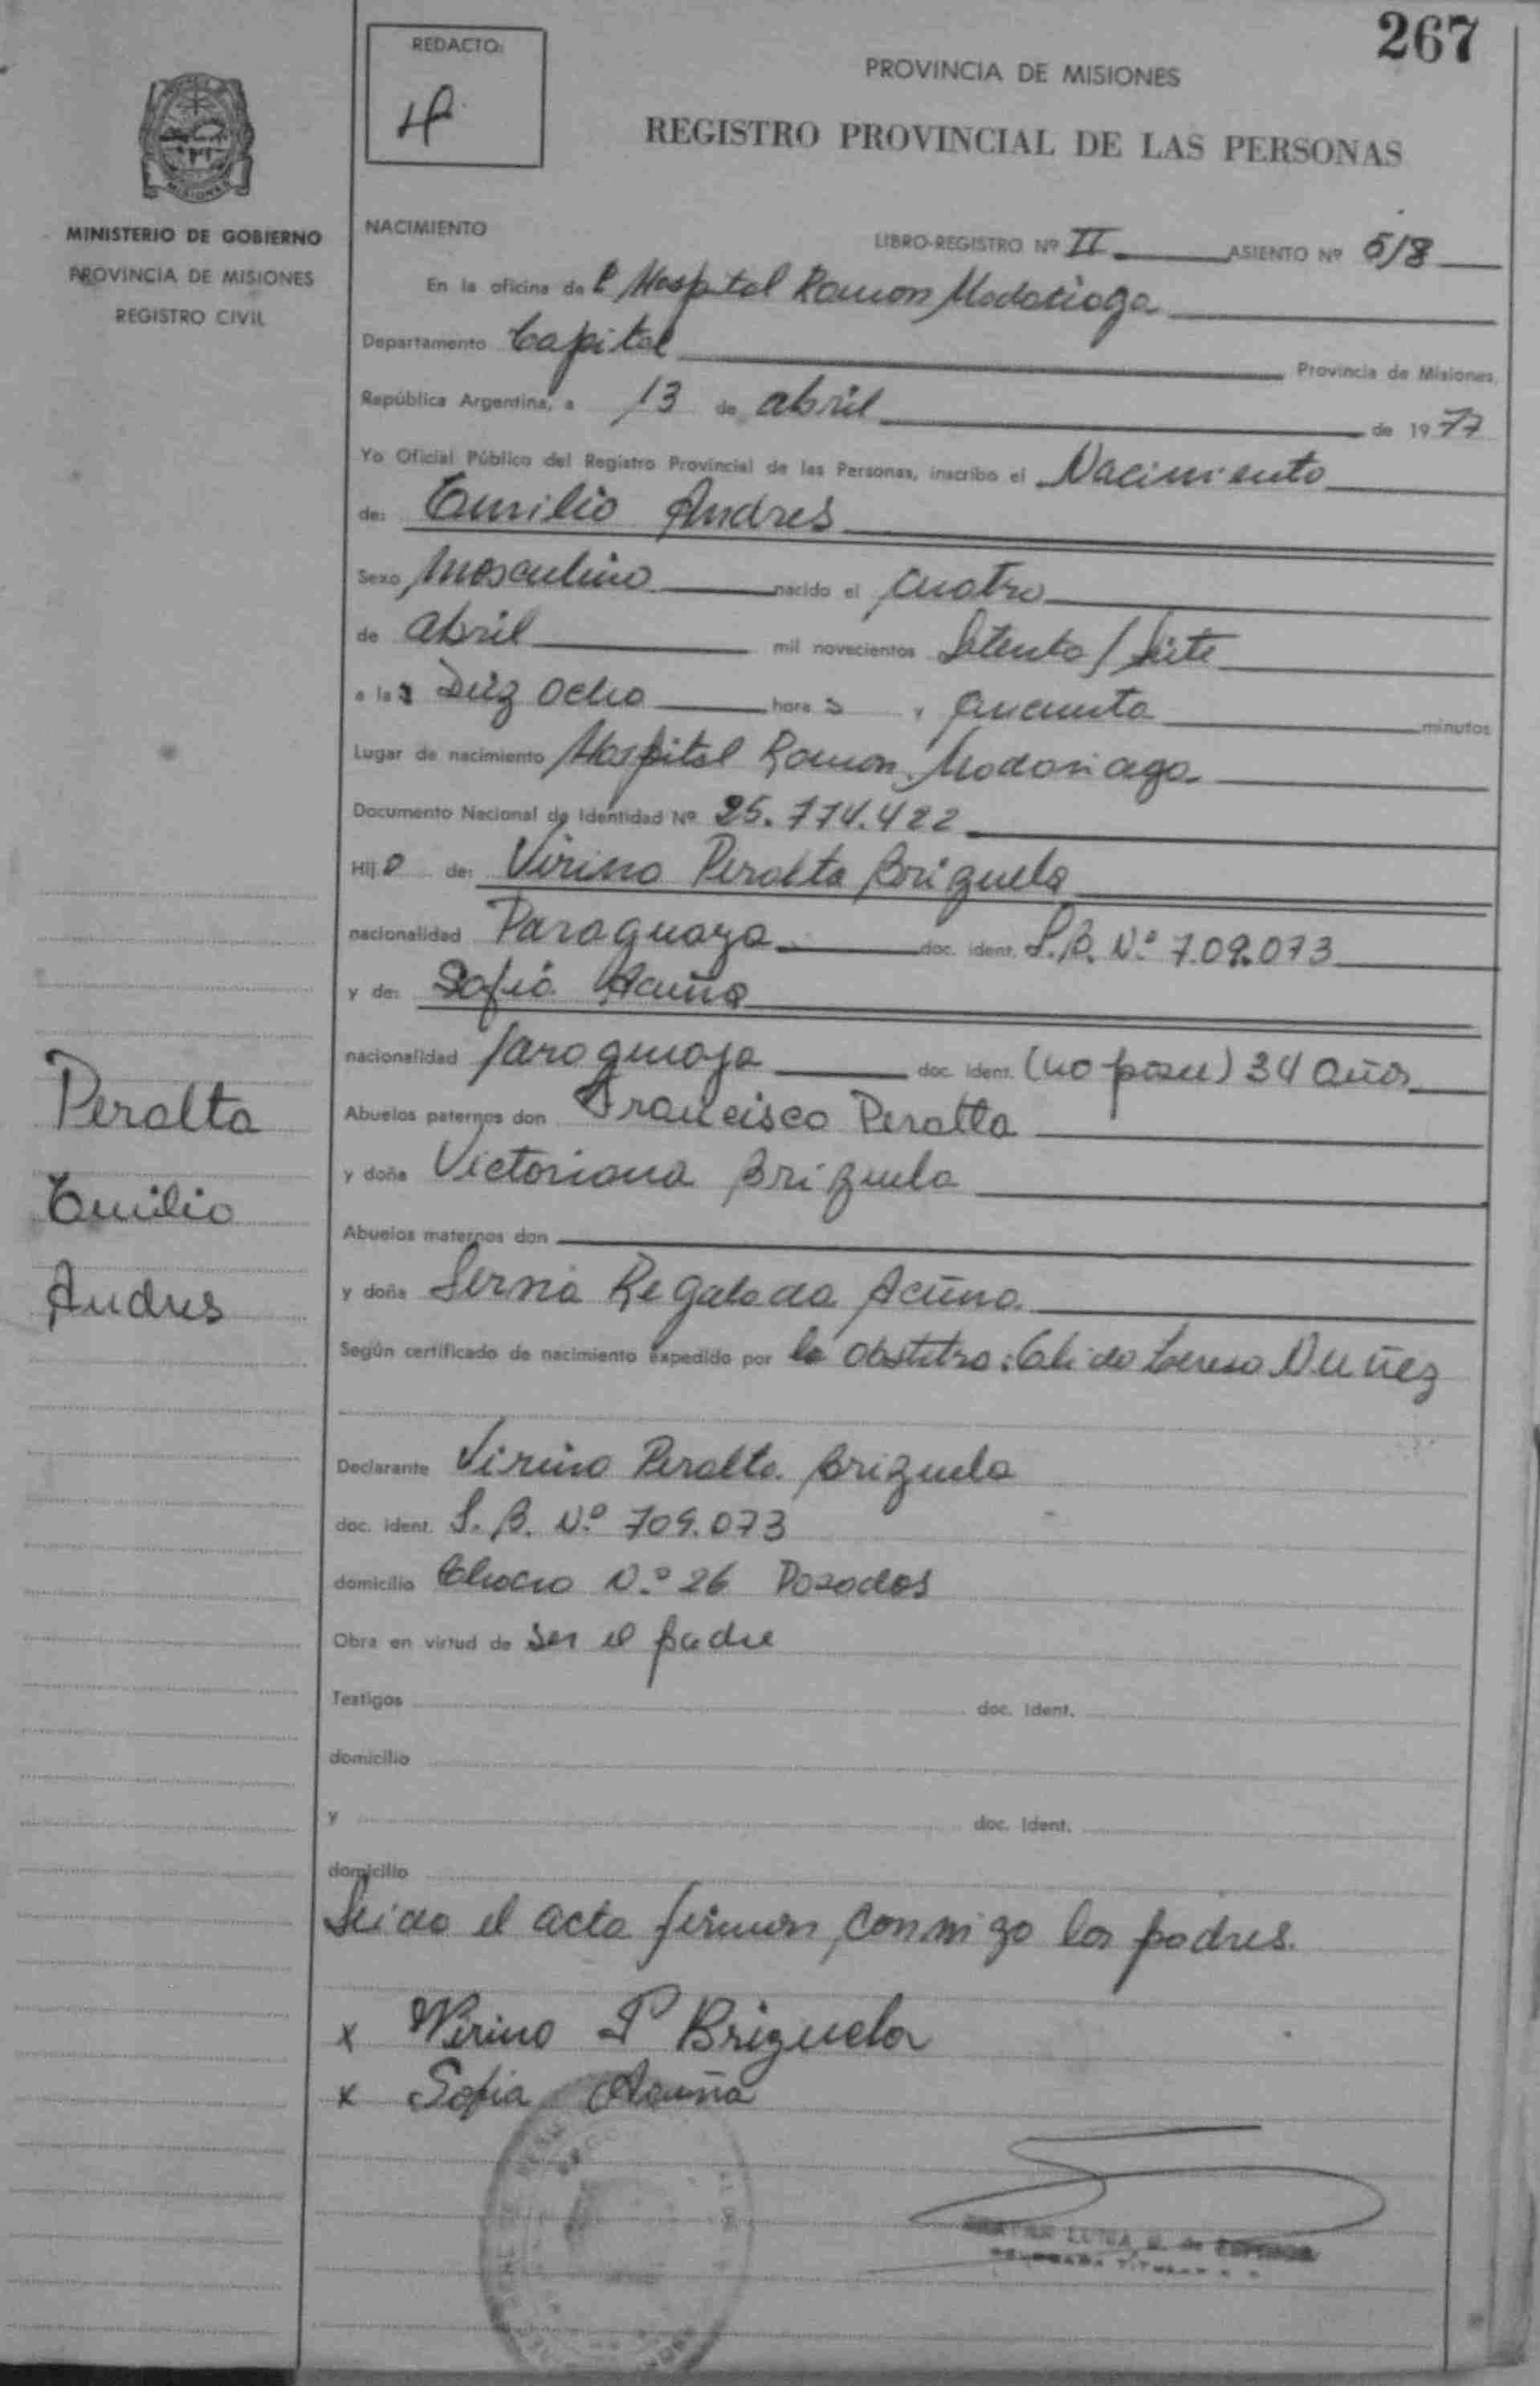 267
REDACTO:
PROVINCIA DE MISIONES
REGISTRO PROVINCIAL DE LAS PERSONAS
MISIONES
MINISTERIO DE GOBIERNO
PROVINCIA DE MISIONES
REGISTRO CIVIL
NACIMIENTO
LIBRO-REGISTRO Nº II ASIENTO Nº 518
En la oficina de l Hospital Ramon Madariaga
Departamento Capital Provincia de Misiones,
República Argentina, a 13 de abril de 1977
Yo Oficial Público del Registro Provincial de las Personas, inscribo el Nacimiento
de: Emilio Andres
Sexo Masculino nacido el cuatro
de abril mil novecientos Setenta / Siete
a las Diez ocho horas y cincuenta minutos
Lugar de nacimiento Hospital Ramon Madariaga
Documento Nacional de Identidad Nº 25.774.422
Hijo de: Virino Peralta Brizuela
nacionalidad Paraguaya doc. ident. S.B. Nº 709.073
y de: Sofia Acuña
nacionalidad Paraguaya doc. ident. (no posee) 34 años
Abuelos paternos don Francisco Peralta
y doña Victoriana Brizuela
Abuelos maternos don
y doña Serna Regalada Acuña
Según certificado de nacimiento expedido por la obstetra: Nuñez
Declarante Virino Peralta Brizuela
doc. ident. S.B. Nº 709.073
domicilio Chaco Nº 26 Posadas
Obra en virtud de ser el padre
Testigos doc. ident.
domicilio
y doc. ident.
domicilio
Leida el acta firman conmigo los padres.
x Virino P Brizuela
x Sofia Acuña
Peralta
Emilio
Andres